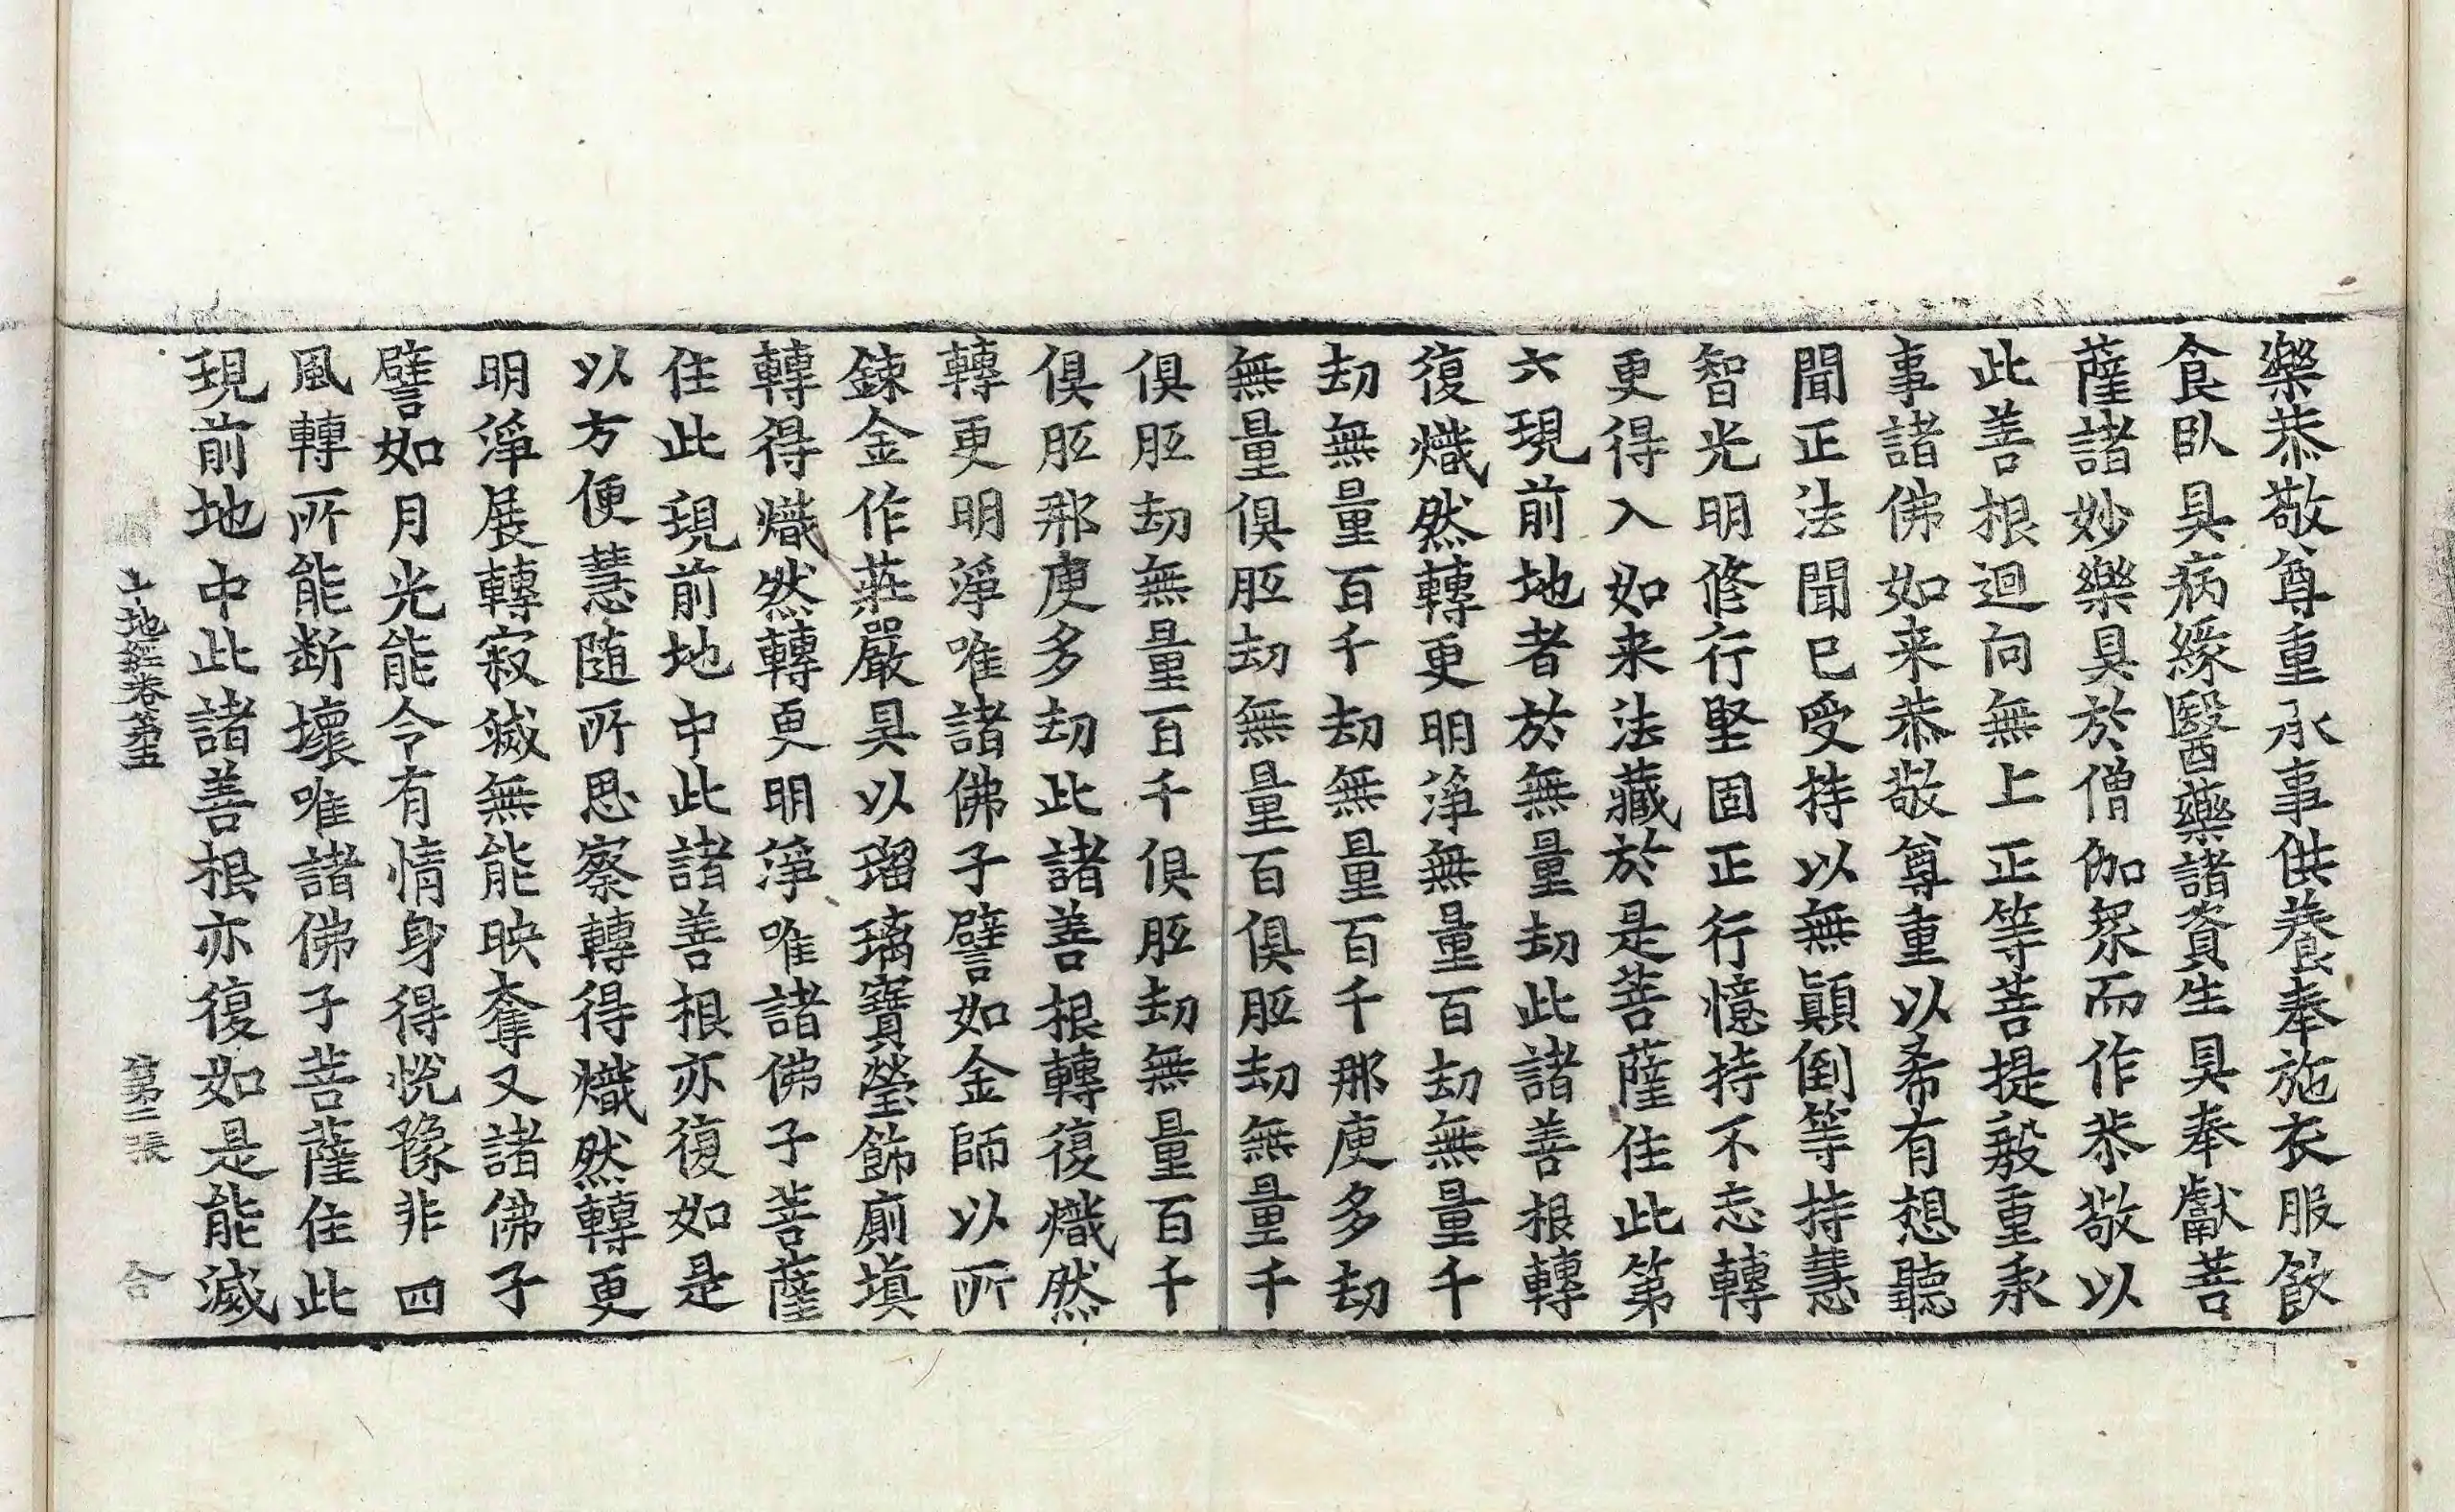 樂恭敬尊重承事供養奉施衣服飮
食臥具病緣醫藥諸資生具奉獻菩
薩諸妙樂具於僧伽衆而作恭敬以
此善根迴向無上正等菩提親重承
事諸佛如来恭敬尊重以希有想聽
聞正法聞已受持以無顚倒等持慧
智光明修行堅固正行憶持不忘轉
更得入如来法藏於是菩薩住此第
六現前地者於無量劫此諸善根轉
復熾然轉更明淨無量百劫無量千
劫無量百千劫無量百千那庾多劫
無量俱胝劫無量百俱胝劫無量千
俱胝劫無量百千俱胝劫無量百千
俱胝那庾多劫此諸善根轉復熾然
轉更明淨唯諸佛子譬如金師以所
鍊金作莊嚴具以瑠璃寶瑩飾廁塡
轉得熾然轉更明淨唯諸佛子菩薩
住此現前地中此諸善根亦復如是
以方便慧随所思察轉得熾然轉更
明淨展轉寂滅無能映奪又諸佛子
譬如月光能令有情身得悅豫非四
風轉所能断壞唯諸佛子菩薩住此
現前地中此諸善根亦復如是能滅
十地經卷第五　第二張　合